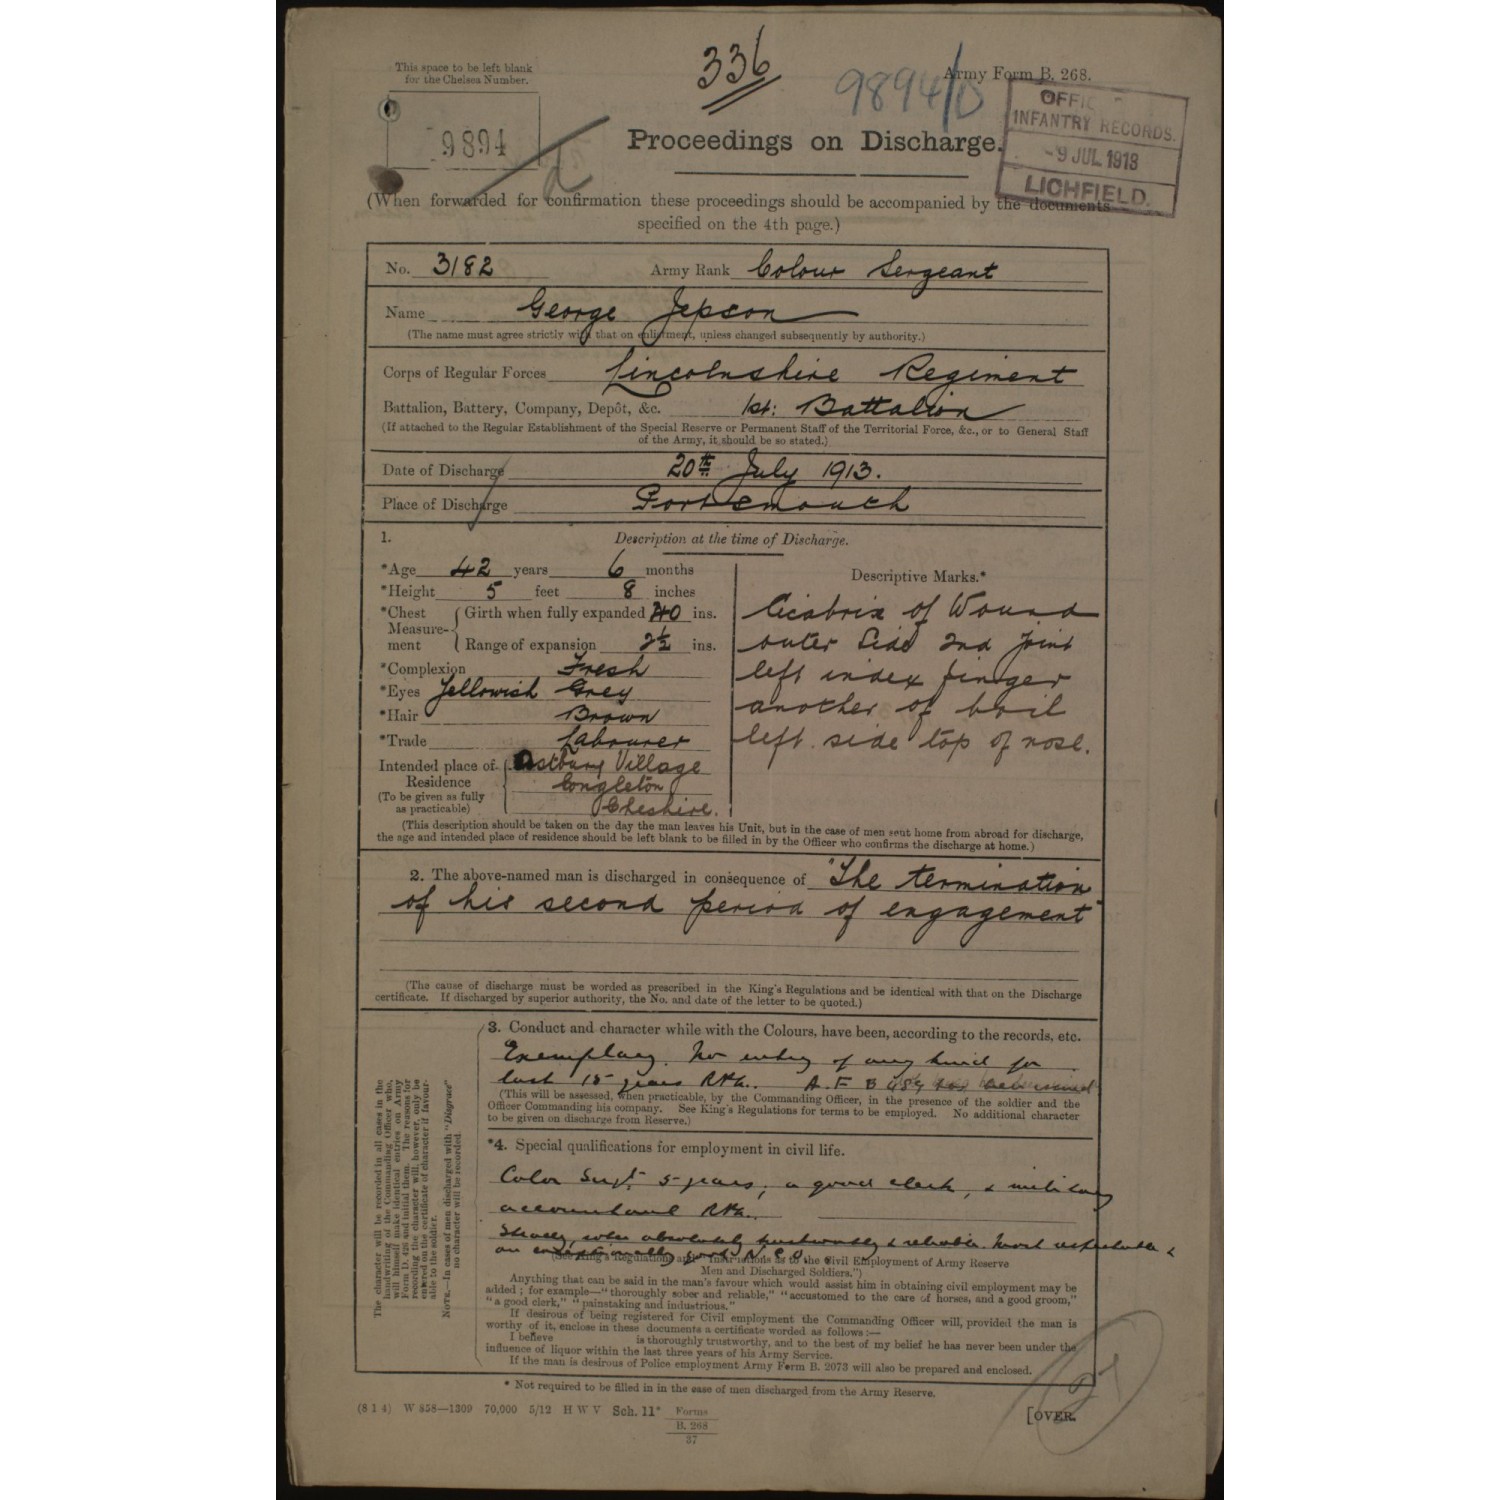 This space to be left blank
for the Chelsea Number.
336
9894/D
Army Form B. 268.
9894
Proceedings on Discharge.
INFANTRY RECORDS.
-9 JUL 1913
LICHFIELD.
(When forwarded for confirmation these proceedings should be accompanied by the documents
specified on the 4th page.)
No. 3182 Army Rank Colour Sergeant
Name George Jepson
(The name must agree strictly with that on enlistment, unless changed subsequently by authority.)
Corps of Regular Forces Lincolnshire Regiment
Battalion, Battery, Company, Depôt, &c. 1st: Battalion
(If attached to the Regular Establishment of the Special Reserve or Permanent Staff of the Territorial Force, &c., or to General Staff
of the Army, it should be so stated.)
Date of Discharge 20th July 1913.
Place of Discharge Portsmouth
1. Description at the time of Discharge.
*Age 42 years 6 months
*Height 5 feet 8 inches
*Chest Measurement { Girth when fully expanded 40 ins.
Range of expansion 2½ ins.
*Complexion Fresh
*Eyes Yellowish Grey
*Hair Brown
*Trade Labourer
Intended place of Residence (To be given as fully as practicable) { Astbury Village
Congleton
Cheshire.
Descriptive Marks.*
Cicatrix of Wound
outer Side 2nd joint
left index finger
another of boil
left side top of nose.
(This description should be taken on the day the man leaves his Unit, but in the case of men sent home from abroad for discharge,
the age and intended place of residence should be left blank to be filled in by the Officer who confirms the discharge at home.)
2. The above-named man is discharged in consequence of "The termination
of his second period of engagement"
(The cause of discharge must be worded as prescribed in the King's Regulations and be identical with that on the Discharge
certificate. If discharged by superior authority, the No. and date of the letter to be quoted.)
The character will be recorded in all cases in the
handwriting of the Commanding Officer who,
will himself make identical entries on Army
Form D. 426 and initial them. The reasons for
recording the character will, however, only be
entered on the certificate of character if favour-
able to the soldier.
NOTE.—In cases of men discharged with "Disgrace"
no character will be recorded.
3. Conduct and character while with the Colours, have been, according to the records, etc.
Exemplary. No entry of any kind for
last 15 years A.F. B
(This will be assessed, when practicable, by the Commanding Officer, in the presence of the soldier and the
Officer Commanding his company. See King's Regulations for terms to be employed. No additional character
to be given on discharge from Reserve.)
*4. Special qualifications for employment in civil life.
Color Sergt. 5 years, a good clerk, & military
accountant
Steady, sober absolutely trustworthy & reliable. Most respectable &
an exceptionally good N.C.O.
(See King's Regulations and "Instructions as to the Civil Employment of Army Reserve
Men and Discharged Soldiers.")
Anything that can be said in the man's favour which would assist him in obtaining civil employment may be
added; for example—"thoroughly sober and reliable," "accustomed to the care of horses, and a good groom,"
"a good clerk," "painstaking and industrious."
If desirous of being registered for Civil employment the Commanding Officer will, provided the man is
worthy of it, enclose in these documents a certificate worded as follows:—
I believe is thoroughly trustworthy, and to the best of my belief he has never been under the
influence of liquor within the last three years of his Army Service.
If the man is desirous of Police employment Army Form B. 2073 will also be prepared and enclosed.
* Not required to be filled in in the case of men discharged from the Army Reserve.
(8 1 4) W 858—1309 70,000 5/12 H W V Sch. 11* Forms
B. 268
37
[OVER.